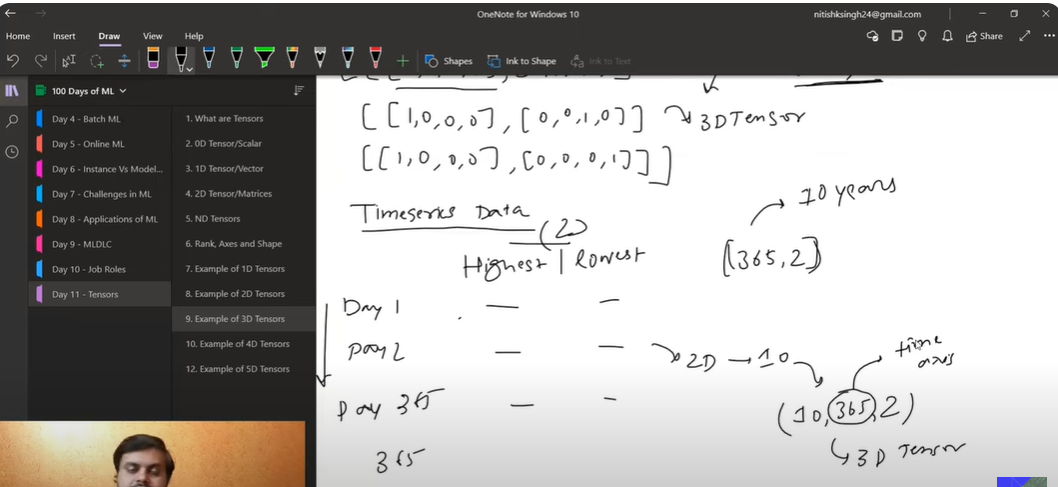 OneNote for Windows 10
nitishksingh24@gmail.com
Home Insert Draw View Help
Share
Shapes Ink to Shape Ink to Text
100 Days of ML
Day 4 - Batch ML
Day 5 - Online ML
Day 6 - Instance Vs Model...
Day 7 - Challenges in ML
Day 8 - Applications of ML
Day 9 - MLDLC
Day 10 - Job Roles
Day 11 - Tensors
1. What are Tensors
2. 0D Tensor/Scalar
3. 1D Tensor/Vector
4. 2D Tensor/Matrices
5. ND Tensors
6. Rank, Axes and Shape
7. Example of 1D Tensors
8. Example of 2D Tensors
9. Example of 3D Tensors
10. Example of 4D Tensors
12. Example of 5D Tensors
[[1,0,0,0], [0,0,1,0]] 3D Tensor
[[1,0,0,0], [0,0,0,1]]]
Timeseries Data
(2)
10 years
Highest | lowest
(365,2)
Day 1
Day 2
2D → 10
time axis
Day 365
(10,365,2)
3D Tensor
365